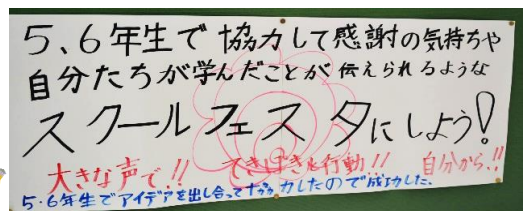 5、6年生で協力して感謝の気持ちや
自分たちが学んだことが伝えられるような
スクールフェスタにしよう!
大きな声で!! てきぱきと行動!! 自分から!!
5・6年生でアイデアを出し合って協力したので成功した。